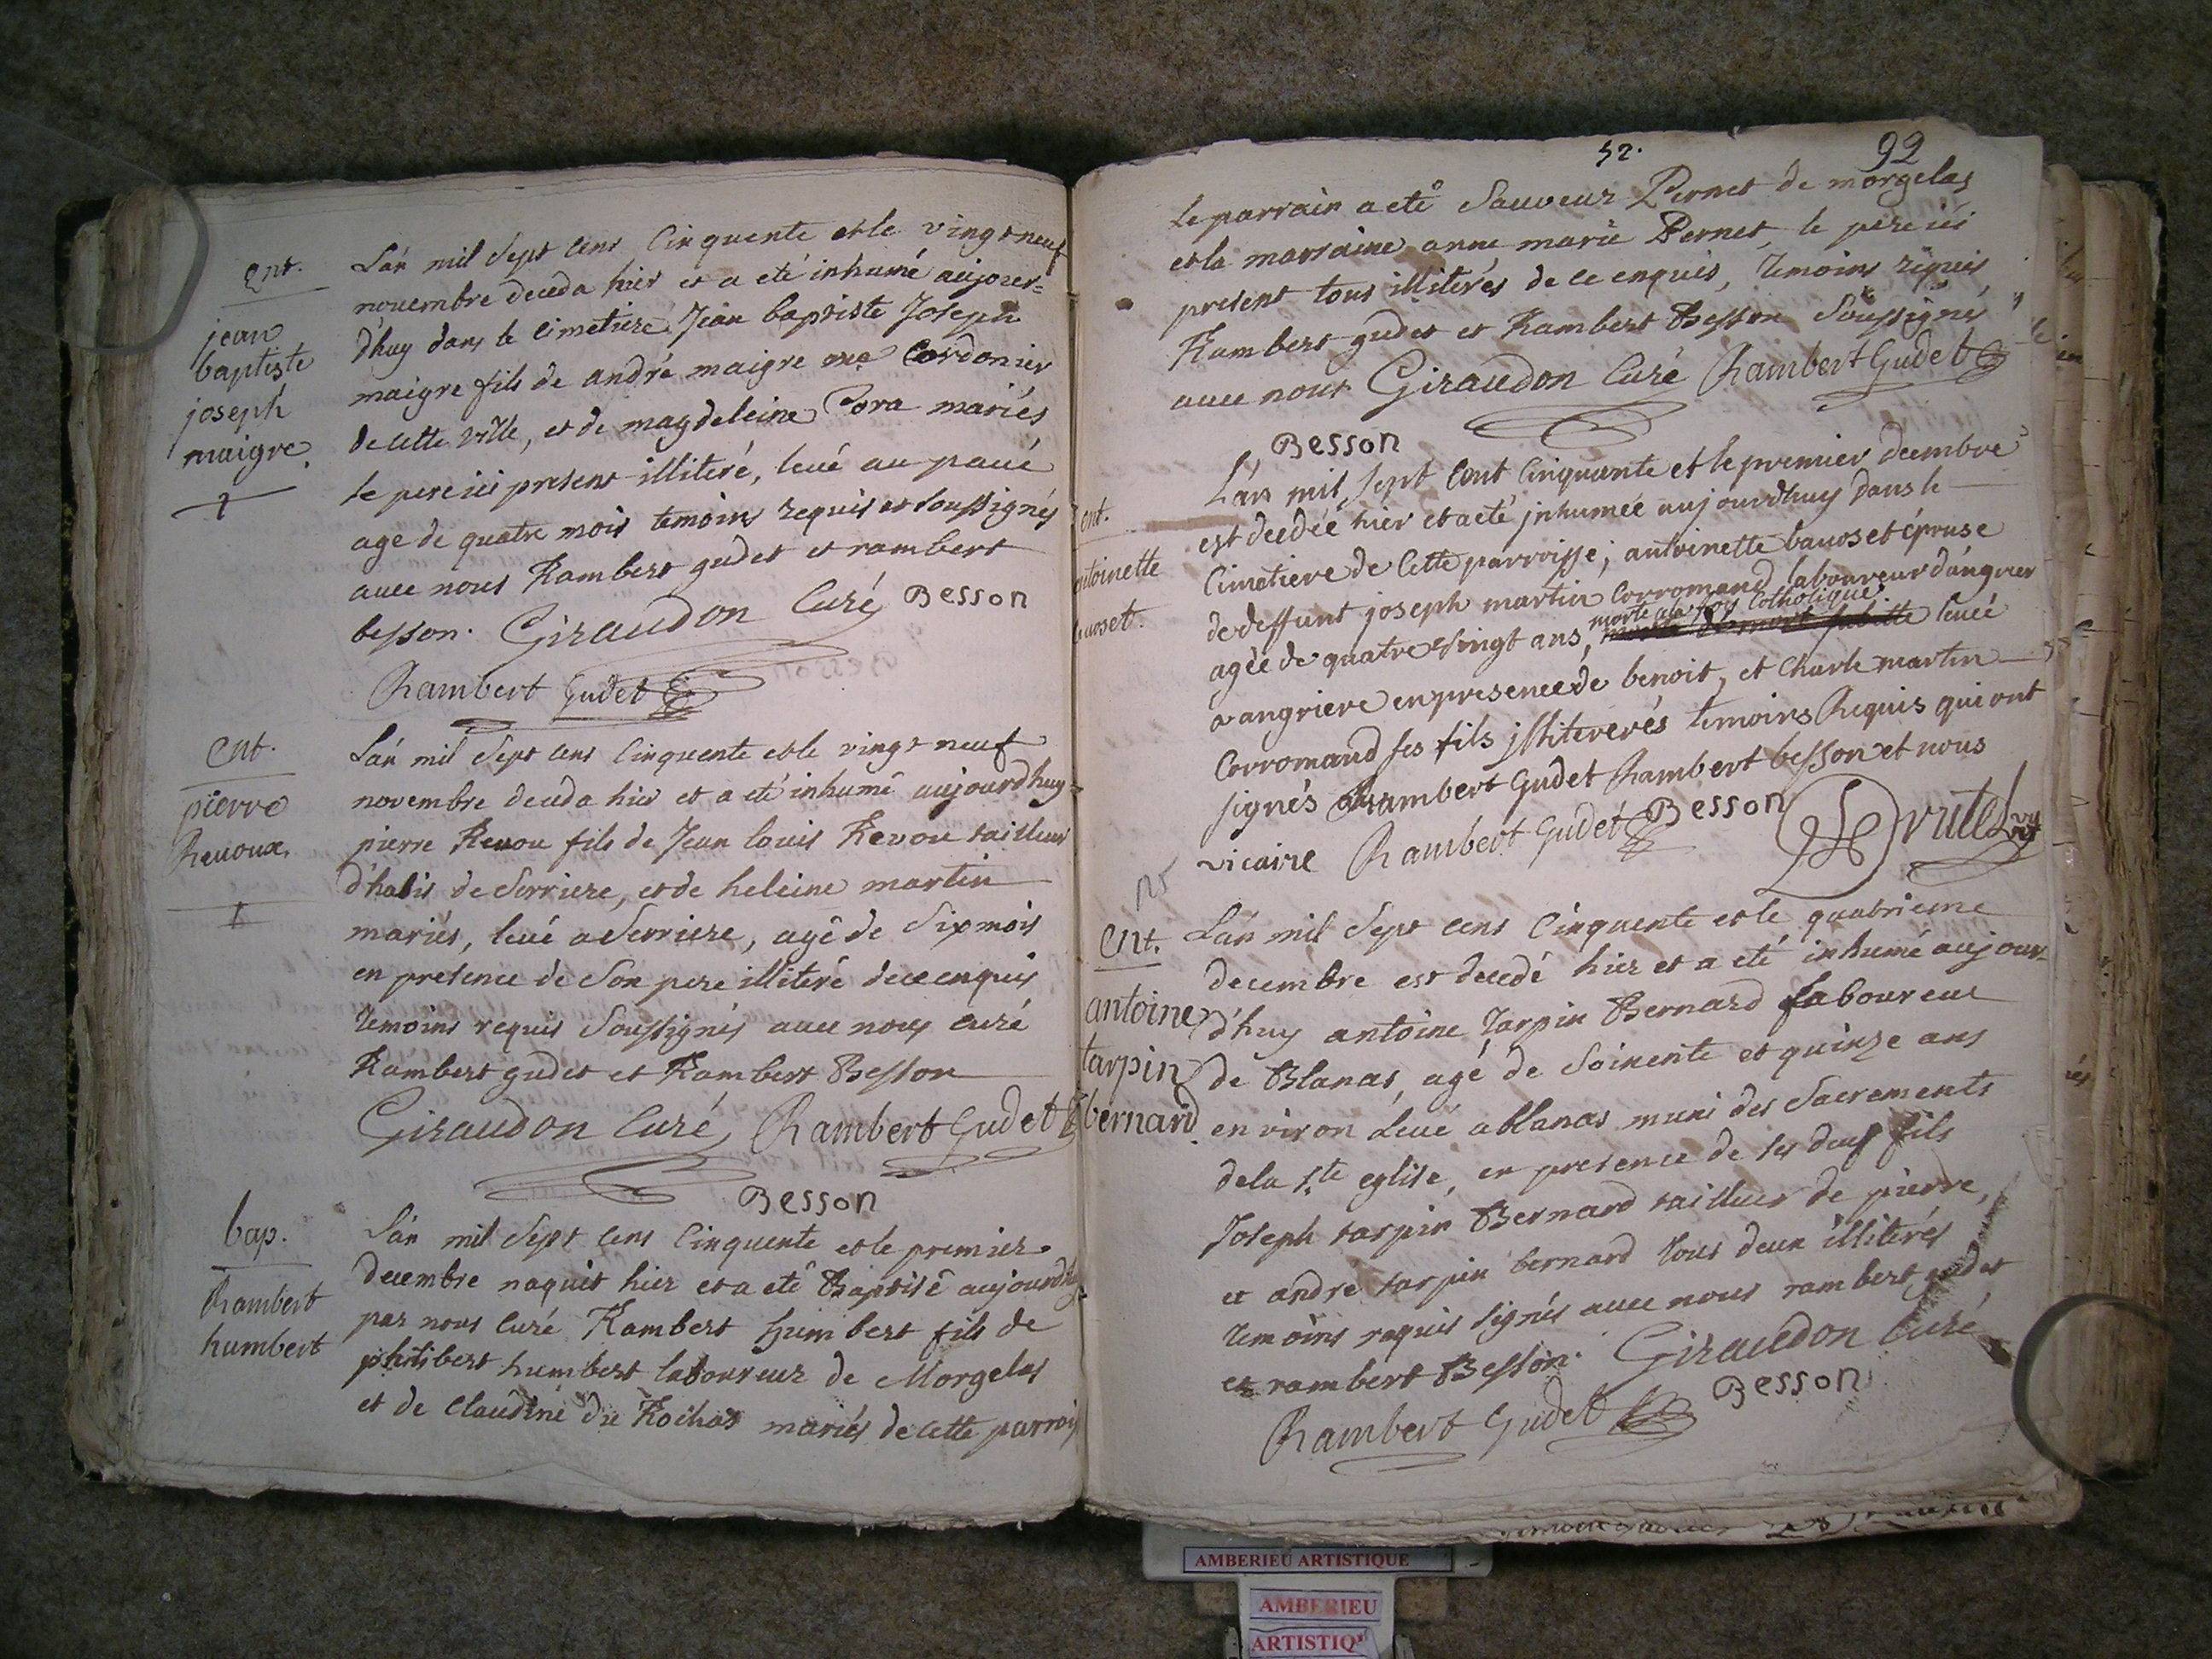 ent.
jean
baptiste
joseph
maigre.
L'an mil sept cens Cinquente et le vingt neuf
novembre deceda hier et a eté inhumé aujour=
d'huy dans le Cimetiere Jean baptiste Joseph
maigre fils de andré maigre me Cordonier
de cette ville, et de magdeleine Cora mariés
le pere ici present illiteré, levé au pavé
age de quatre mois temoins requis et soussignés
avec nous Rambert gudet et rambert
besson. Giraudon Curé Besson
Rambert Gudet
ent.
pierre
Revoux.
L'an mil sept cens Cinquente et le vingt neuf
novembre deceda hier et a eté inhumé aujourdhuy
pierre Revou fils de Jean louis Revou tailleur
d'habis de Serriere, et de heleine martin
mariés, levé a Serriere, agé de Six mois
en presence de Son pere illiteré de ce enquis
temoins requis Soussignés avec nous curé
Rambert gudet et Rambert Besson
Giraudon Curé Rambert Gudet
Besson
bap.
Rambert
humbert
L'an mil Sept cens Cinquente et le premier
decembre naquit hier et a eté Baptisé aujourdhuy
par nous Curé Rambert humbert fils de
philibert humbert laboureur de Morgelas
et de Claudine du Rochas mariés de cette parrois
52. 92
le parrain a eté Sauveur Pernet de morgelas
et la marraine anne marie Pernet, le pere ici
present tous illiterés de ce enquis, temoins requis
Rambert gudet et Rambert Besson Soussignés
avec nous Giraudon Curé Rambert Gudet
Besson
ent.
antoinette
bavoset.
L'an mil sept cent Cinquante et le premier decembre
est decedée hier et a eté inhumée aujourdhuy dans le
Cimetiere de Cette parroisse; antoinette bavoset épouse
de deffunt joseph martin Corromand laboureur d'angrier
morte en foy Catholique
agée de quatre vingt ans, morte de mort subitte levée
a angriere en presence de benoit, et Charle martin
Corromand ses fils illiterés temoins Requis qui ont
signés Rambert Gudet Rambert besson et nous
vicaire Rambert Gudet Besson Drutel vic
ent.
antoine
tarpin
bernard.
L'an mil Sept cens Cinquente et le quatrieme
decembre est decedé hier et a eté inhumé aujour-
d'huy antoine tarpin Bernard Laboureur
de Blanas, agé de Soixente et quinze ans
environ levé a blanas muni des Sacrements
de la ste eglise, en presence de ses deux fils
Joseph tarpin Bernard tailleur de pierre,
et andré tarpin bernard tous deux illiterés
temoins requis signés avec nous rambert gudet
et rambert Besson. Giraudon Curé
Rambert Gudet Besson
AMBERIEU ARTISTIQUE
AMBERIEU
ARTISTIQ